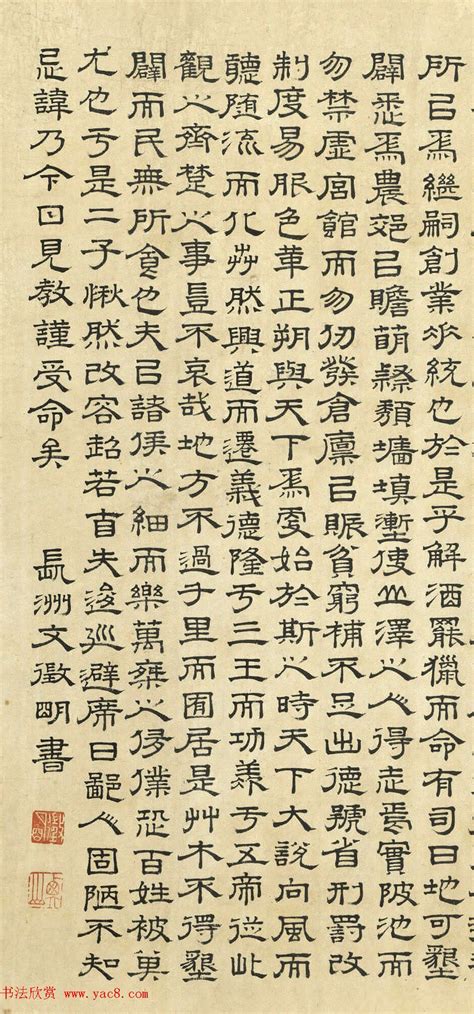 所以爲繼嗣創業垂統也於是乎解酒罷獵而命有司曰地可墾
闢悉爲農郊以贍萌隸頹墻填塹使山澤之人得走焉實陂池而
勿禁虛宮館而勿仞發倉廩以賑貧窮補不足出德號省刑罰改
制度易服色革正朔與天下爲更始於斯之時天下大說向風而
聽随流而化芔然興道而遷義德隆于三王而功羨于五帝從此
觀之齊楚之事豈不哀哉地方不過千里而囿居是艸木不得墾
闢而民無所食也夫以諸侯之細而樂萬乘之侈僕恐百姓被其
尤也于是二子愀然改容超若自失逡巡避席曰鄙人固陋不知
忌諱乃今日見教謹受命矣 長洲文徵明書
书法欣赏 www.yac8.com